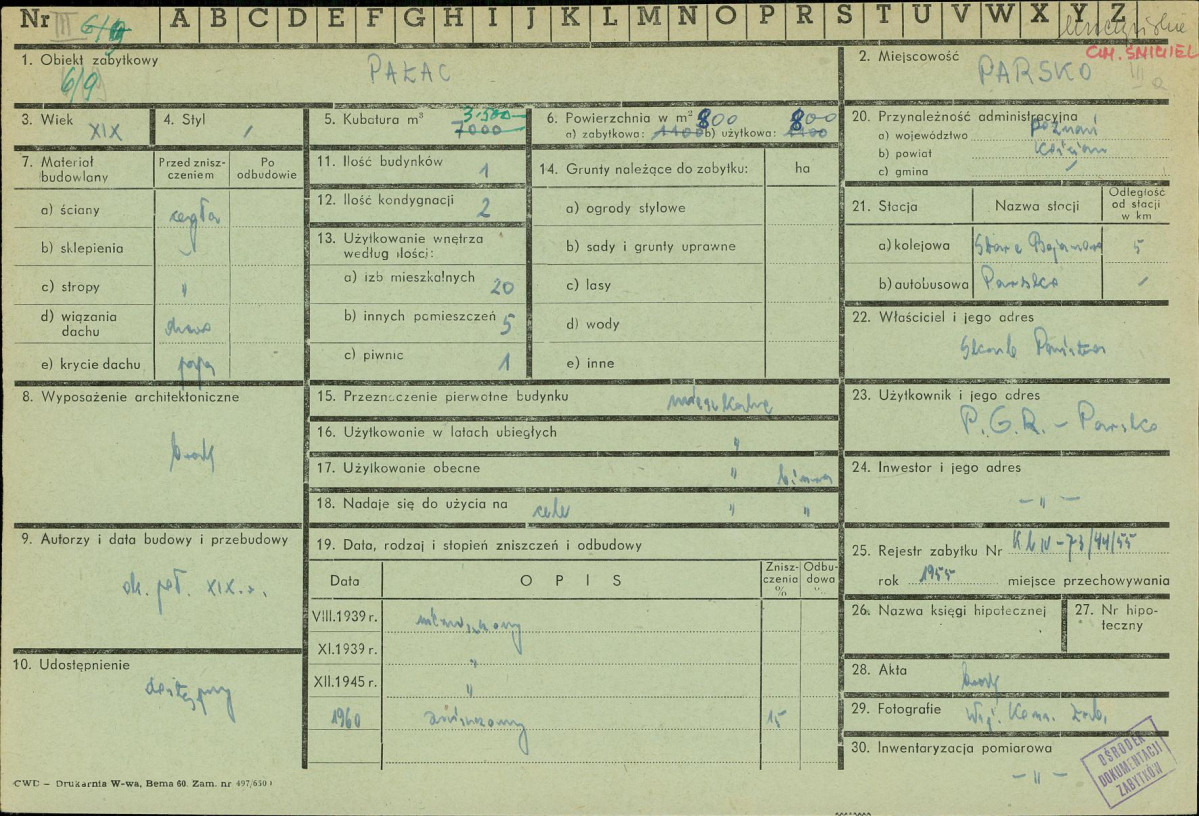 Nr III 6/9 A B C D E F G H I J K L M N O P R S T U V W X Y Z
GM. ŚMIGIEL
1. Obiekt zabytkowy
6/9
PAŁAC
2. Miejscowość
PARSKO
III a
3. Wiek XIX
4. Styl /
5. Kubatura m³ 3.500
7000
6. Powierzchnia w m² 800 800
a) zabytkowa: 1100 b) użytkowa: 1100
20. Przynależność administracyjna
a) województwo poznań
b) powiat Kościan
c) gmina /
7. Materiał budowlany
Przed zniszczeniem
Po odbudowie
a) ściany cegła
b) sklepienia "
c) stropy "
d) wiązania dachu drewno
e) krycie dachu papa
11. Ilość budynków 1
12. Ilość kondygnacji 2
13. Użytkowanie wnętrza według ilości:
a) izb mieszkalnych 20
b) innych pomieszczeń 5
c) piwnic 1
14. Grunty należące do zabytku: ha
a) ogrody stylowe
b) sady i grunty uprawne
c) lasy
d) wody
e) inne
21. Stacja
Nazwa stacji
Odległość od stacji w km
a) kolejowa Stare Bojanowo 5
b) autobusowa Parsko /
22. Właściciel i jego adres
Skarb Państwa
8. Wyposażenie architektoniczne
brak
15. Przeznaczenie pierwotne budynku mieszkalne
16. Użytkowanie w latach ubiegłych "
17. Użytkowanie obecne " biura
18. Nadaje się do użycia na cele " "
23. Użytkownik i jego adres
P.G.R. – Parsko
24. Inwestor i jego adres
– " –
9. Autorzy i data budowy i przebudowy
ok. poł. XIX w.
19. Data, rodzaj i stopień zniszczeń i odbudowy
Data
OPIS
Zniszczenia %
Odbudowa %
VIII.1939 r.
XI.1939 r. "
XII.1945 r. "
1960 zniszczony 15
25. Rejestr zabytku Nr KL IV-73/44/55
rok 1955 miejsce przechowywania
26. Nazwa księgi hipotecznej
27. Nr hipoteczny
10. Udostępnienie
dostępny
28. Akta brak
29. Fotografie Woj. Kons. Zab.
30. Inwentaryzacja pomiarowa
– " –
OŚRODEK
DOKUMENTACJI
ZABYTKÓW
CWD – Drukarnia W-wa, Bema 60. Zam. nr 497/650